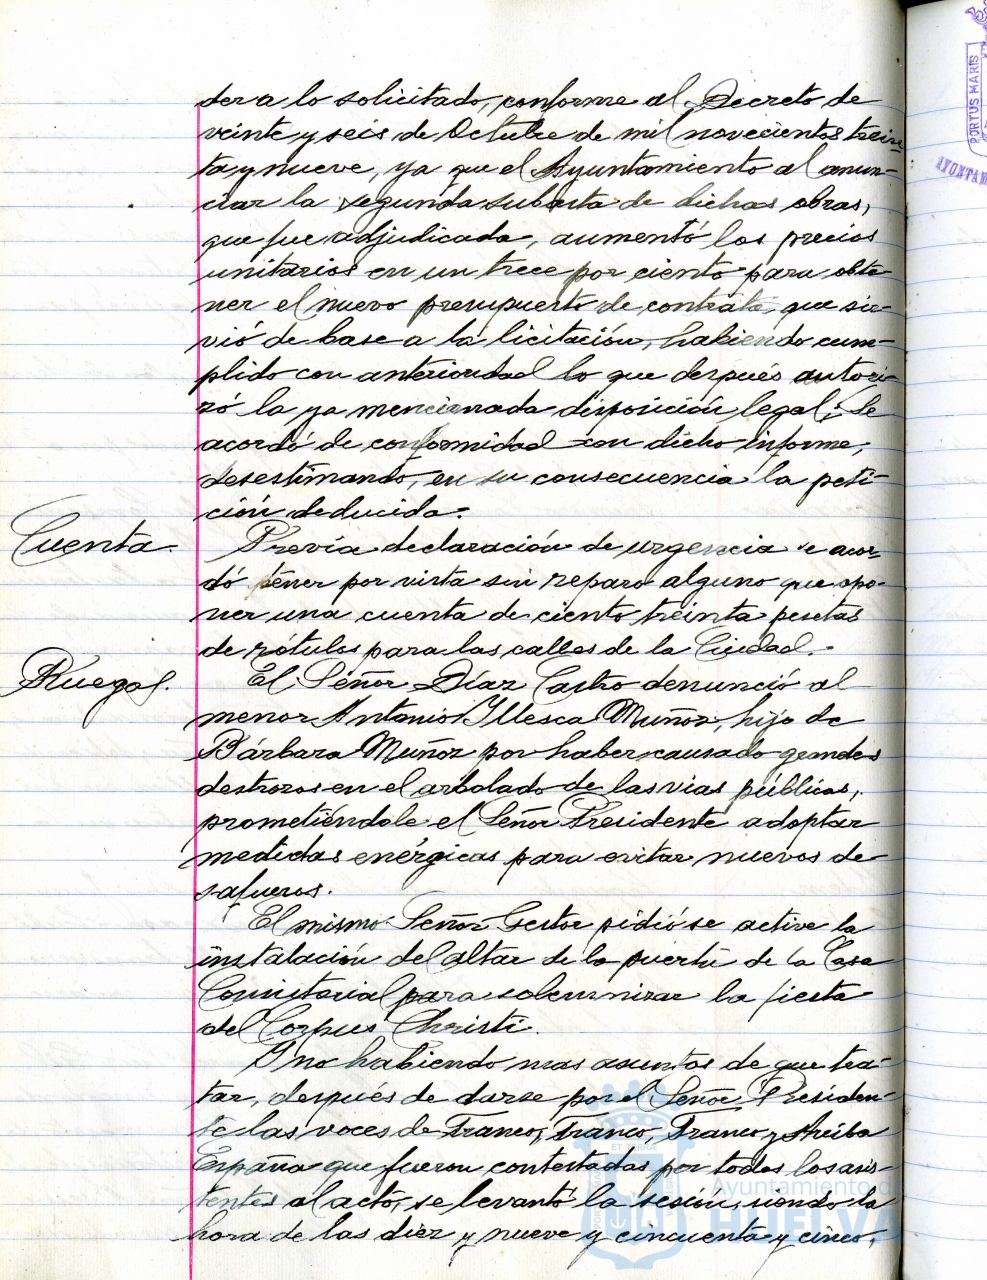 der a lo solicitado, conforme al Decreto de
veinte y seis de Octubre de mil novecientos trein-
ta y nueve, ya que el Ayuntamiento al anun-
ciar la segunda subasta de dichas obras,
que fue adjudicada, aumentó los precios
unitarios en un trece por ciento para obte-
ner el nuevo presupuesto de contrata, que sir-
vió de base a la licitación, habiendo cum-
plido con anterioridad lo que después autori-
zó la ya mencionada disposición legal; Se
acordó de conformidad con dicho informe,
desestimando, en su consecuencia la peti-
ción deducida.
Cuenta. Previa declaración de urgencia se acor-
dó tener por vista sin reparo alguno que opo-
ner una cuenta de ciento treinta pesetas
de rótulos para las calles de la Ciudad.-
Ruegos. El Señor Díaz Castro denunció al
menor Antonio Yllesca Muñoz, hijo de
Bárbara Muñoz por haber causado grandes
destrozos en el arbolado de las vias públicas,
prometiéndole el Señor Presidente adoptar
medidas enérgicas para evitar nuevos de-
safueros.
El mismo Señor Gestor pidió se active la
instalación del altar de la puerta de la Casa
Consistorial para solemnizar la fiesta
del Corpus Christi.
Y no habiendo mas asuntos de que tra-
tar, después de darse por el Señor Presiden-
te las voces de Franco, Franco, Franco y Arriba
España que fueron contestadas por todos los asis-
tentes al acto, se levantó la sesión, siendo la
hora de las diez y nueve y cincuenta y cinco,
PORTUS MARIS
AYUNTAM
Ayuntamiento de
HUELVA